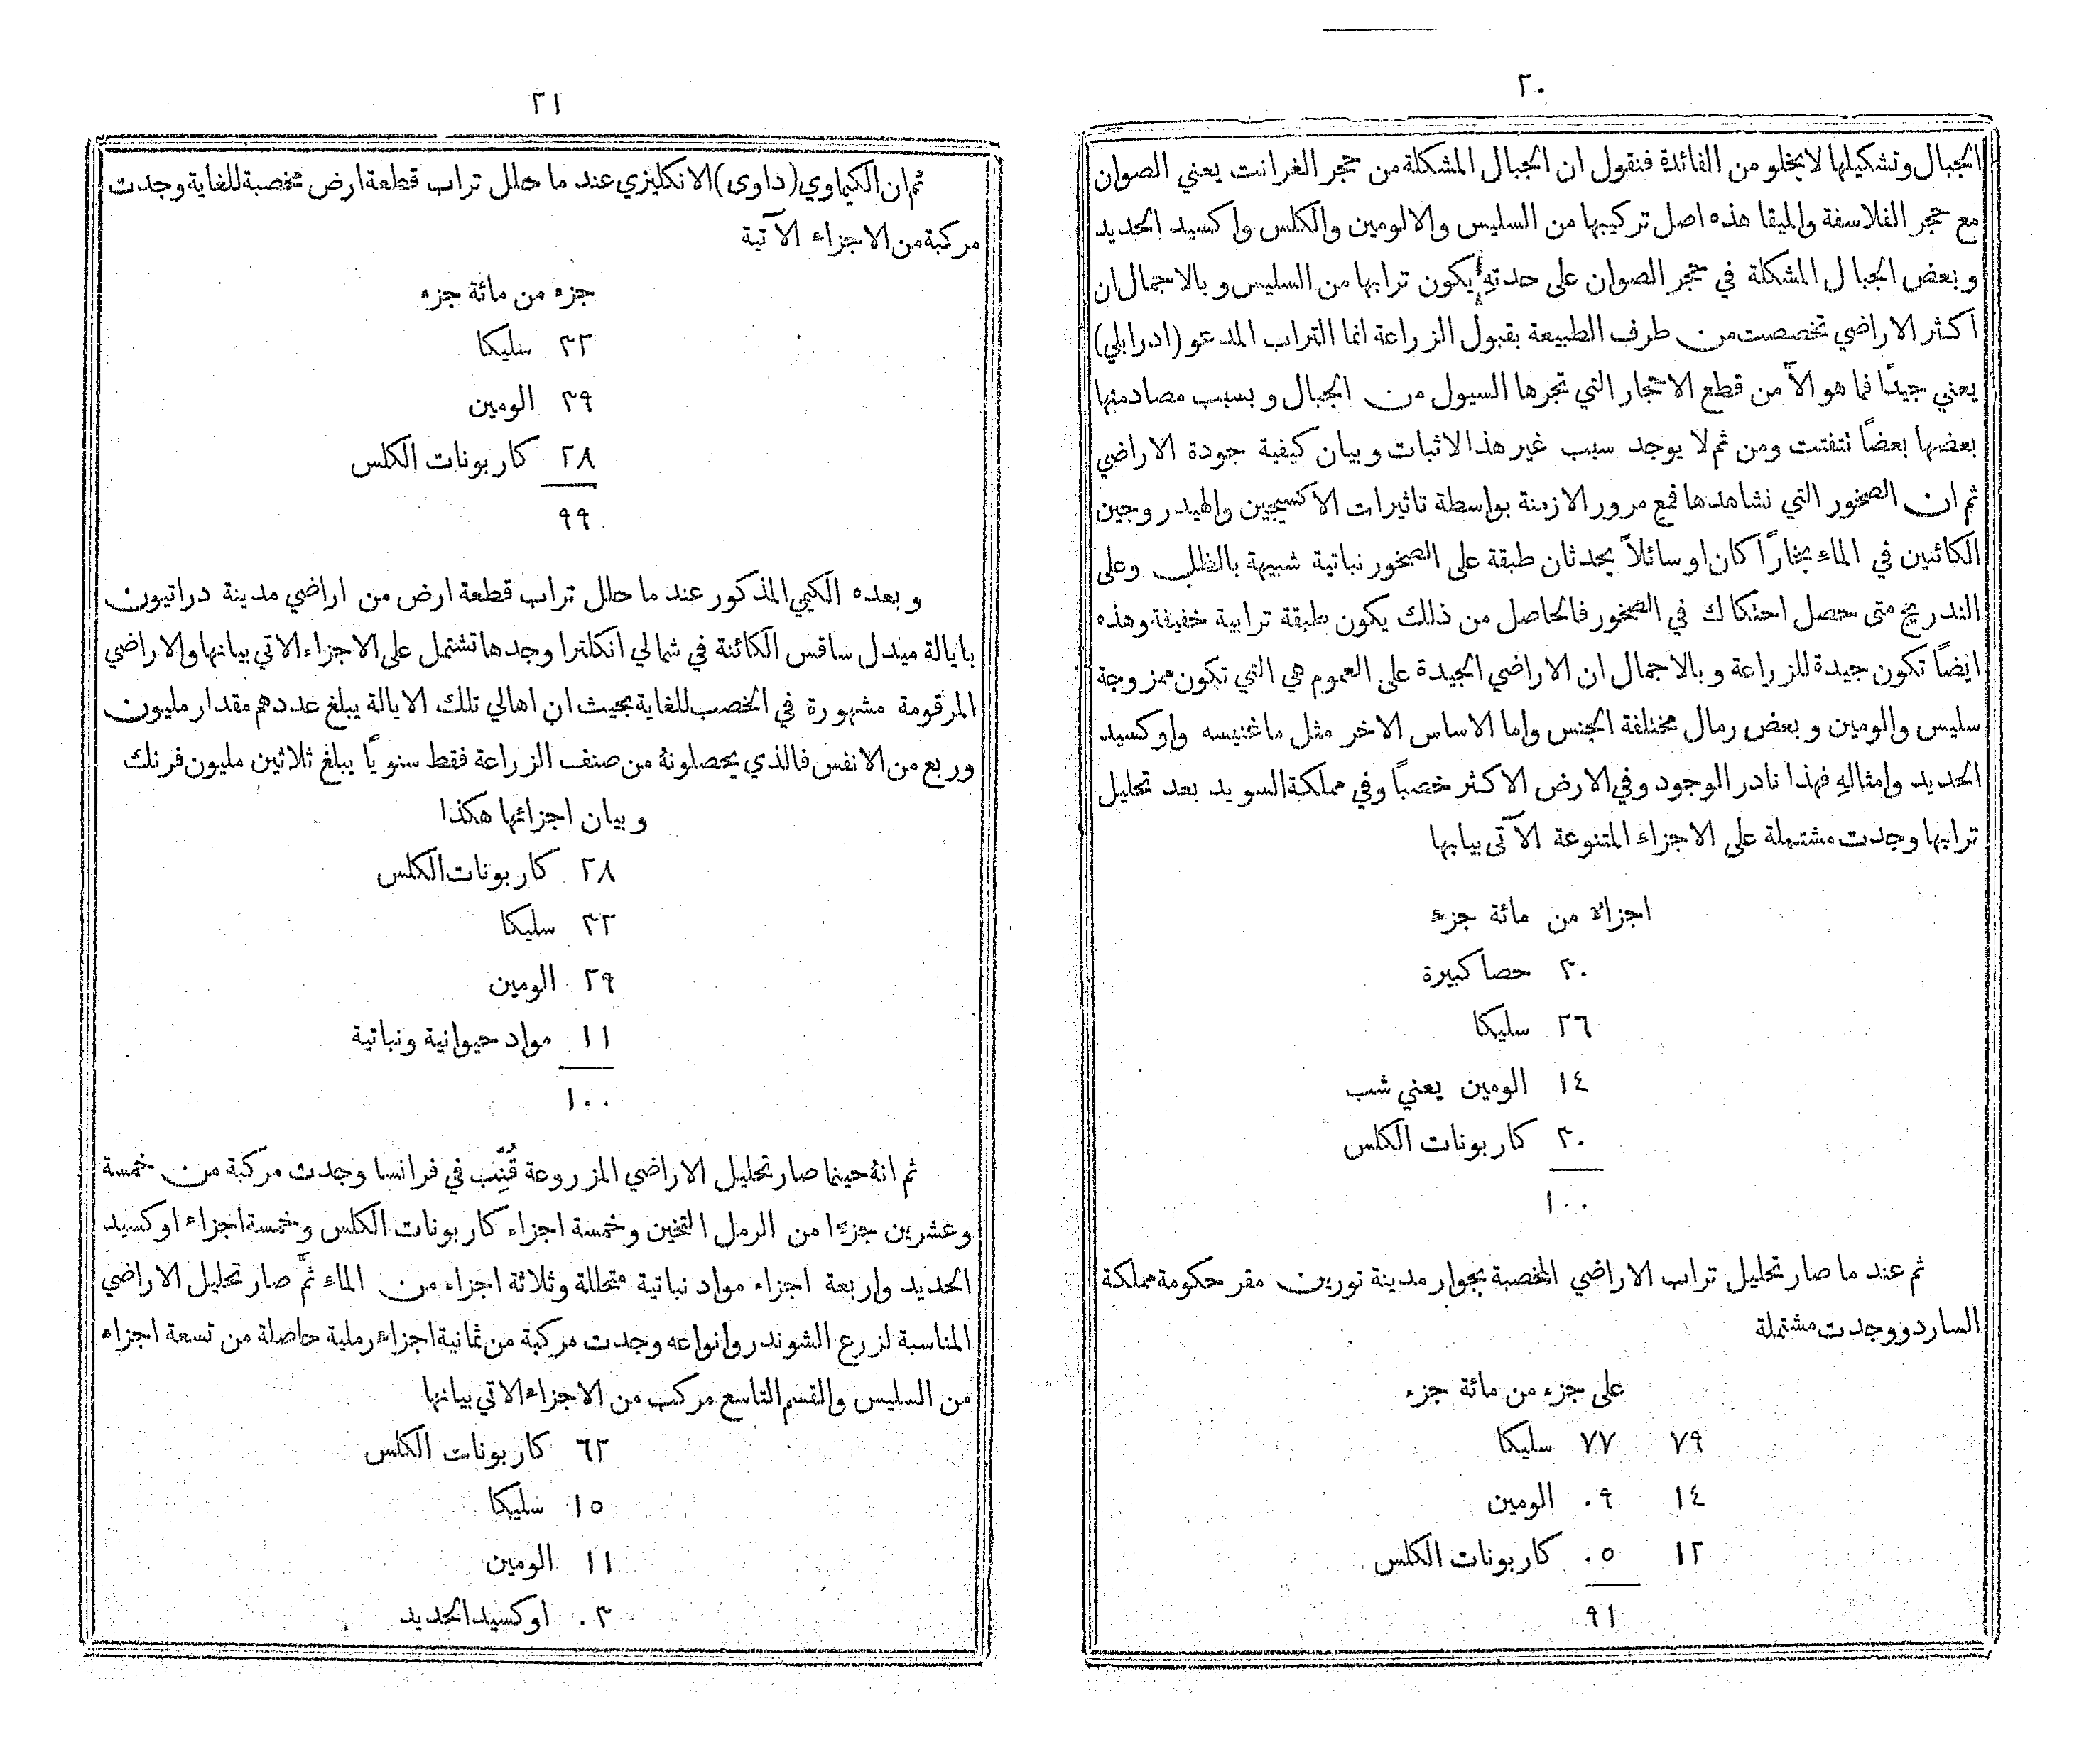 ٢٠
الجبال وتشكيلها لا يخلو من الفائدة فنقول ان الجبال المشكلة من حجر الغرانت يعني الصوان
مع حجر الفلاسفة والميقا هذه اصل تركيبها من السليس والالومين والكلس واكسيد الحديد
وبعض الجبال المشكلة في حجر الصوان على حدته يكون ترابها من السليس وبالاجمال ان
اكثر الاراضي تخصصت من طرف الطبيعة بقبول الزراعة انما التراب المدعو (ادرابلي)
يعني جيدًا فما هو الاّ من قطع الاحجار التي تجرها السيول من الجبال وبسبب مصادمتها
بعضها بعضًا تتفتت ومن ثم لا يوجد سبب غير هذا لاثبات وبيان كيفية جودة الاراضي
ثم ان الصخور التي نشاهدها فمع مرور الازمنة بواسطة تاثيرات الاكسيجين والهيدروجين
الكائنين في الماء بخارًا كان او سائلاً يحدثان طبقة على الصخور نباتية شبيهة بالظلب وعلى
التدريج متى حصل احتكاك في الصخور فالحاصل من ذلك يكون طبقة ترابية خفيفة وهذه
ايضًا تكون جيدة للزراعة وبالاجمال ان الاراضي الجيدة على العموم هي التي تكون ممزوجة
سليس والومين وبعض رمال مختلفة الجنس واما الاساس الاخر مثل ماغنيسه واوكسيد
الحديد وامثاله فهذا نادر الوجود وفي الارض الاكثر خصبًا وفي مملكة السويد بعد تحليل
ترابها وجدت مشتملة على الاجزاء المتنوعة الآتى بيابها
اجزاء من مائة جزء
٣٠ حصا كبيرة
٢٦ سليكا
١٤ الومين يعني شب
٣٠ كاربونات الكلس
١٠٠
ثم عند ما صار تحليل تراب الاراضي المخصبة بجوار مدينة تورين مقر حكومة مملكة
الساردو وجدت مشتملة
على جزء من مائة جزء
٧٩ ٧٧ سليكا
١٤ ٠٩ الومين
١٢ ٠٥ كاربونات الكلس
٩١
٢١
ثم ان الكيماوي (داوى) الانكليزي عند ما حلل تراب قطعة ارض مخصبة للغاية وجدت
مركبة من الاجزاء الآتية
جزء من مائة جزء
٣٢ سليكا
٣٩ الومين
٢٨ كاربونات الكلس
٩٩
وبعده الكيمي المذكور عند ما حلل تراب قطعة ارض من اراضي مدينة دراتيون
بايالة ميدل ساقس الكائنة في شمالي انكلترا وجدها تشتمل على الاجزاء الاتي بيانها والاراضي
المرقومة مشهورة في الخصب للغاية بحيث ان اهالي تلك الايالة يبلغ عددهم مقدار مليون
وربع من الانفس فالذي يحصلونهُ من صنف الزراعة فقط سنويًا يبلغ ثلاثين مليون فرنك
وبيان اجزائها هكذا
٢٨ كاربونات الكلس
٣٢ سليكا
٢٩ الومين
١١ مواد حيوانية ونباتية
١٠٠
ثم انهُ حينما صار تحليل الاراضي المزروعة قُنِّب في فرانسا وجدت مركبة من خمسة
وعشرين جزءًا من الرمل الثخين وخمسة اجزاء كاربونات الكلس وخمسة اجزاء اوكسيد
الحديد واربعة اجزاء مواد نباتية متحللة وثلاثة اجزاء من الماء ثمَّ صار تحليل الاراضي
المناسبة لزرع الشوندر وانواعه وجدت مركبة من ثمانية اجزاء رملية حاصلة من تسعة اجزاء
من السليس والقسم التاسع مركب من الاجزاء الاتي بيانها
٦٢ كاربونات الكلس
١٥ سليكا
١١ الومين
٠٣ اوكسيد الحديد